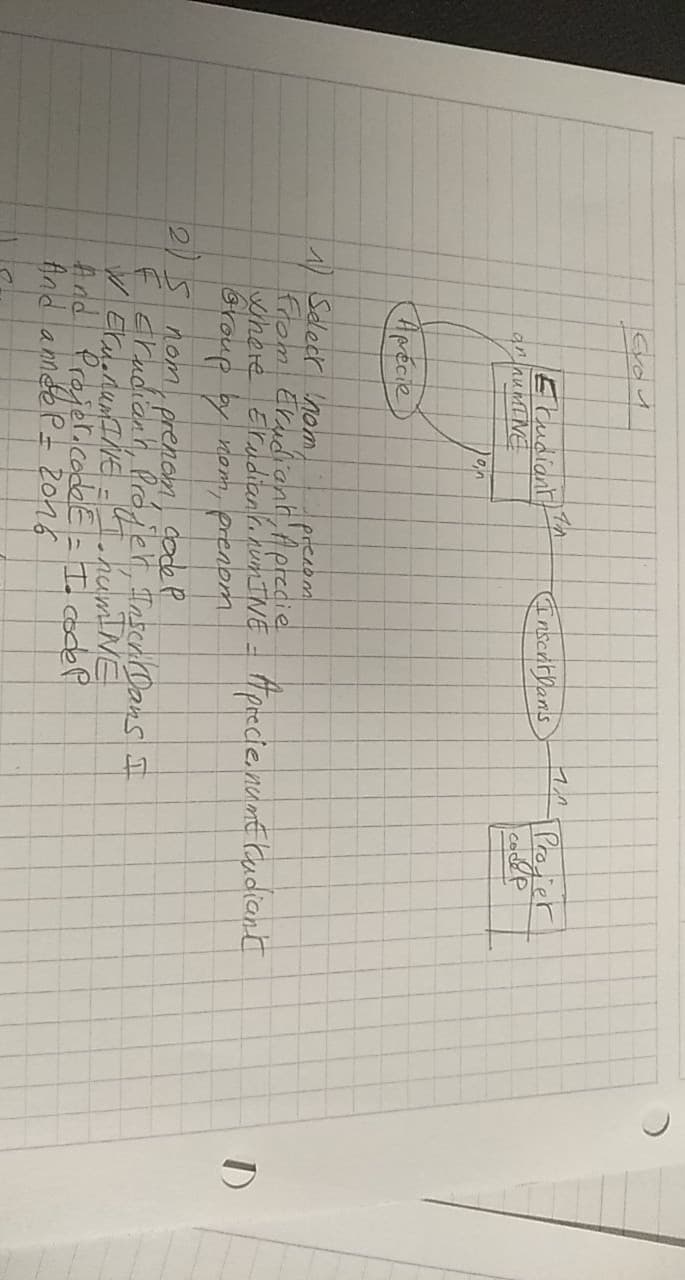 Exo 1
Etudiant 1,n InscritDans 1,n Projet
0,n numINE codeP
0,n
Aprécie
1) Select nom, prenom
From Etudiant, Aprecie
where Etudiant.numINE = Aprecie.numEtudiant
Group by nom, prenom
2) S nom, prenom, codeP
F Etudiant, Projet, InscritDans I
W Etu.numINE = I.numINE
And Projet.codeE = I.codeP
And annéeP = 2016